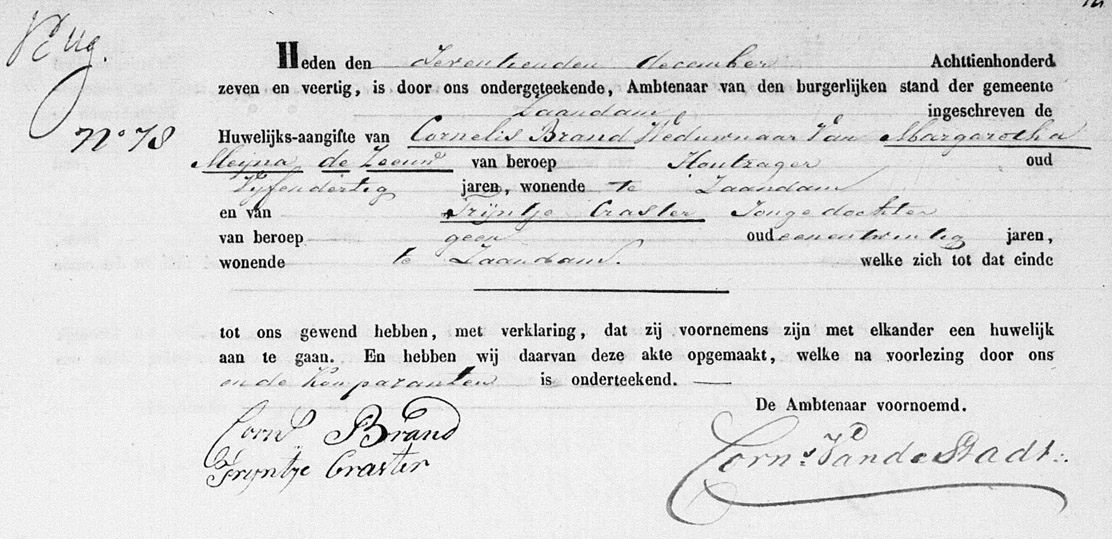 N° 78
Heden den Zeventienden december Achttienhonderd
zeven en veertig, is door ons ondergeteekende, Ambtenaar van den burgerlijken stand der gemeente
Zaandam ingeschreven de
Huwelijks-aangifte van Cornelis Brand Weduwnaar Van Margaretha
Meyna de Leeuw van beroep Houtzager oud
Vyfendertig jaren, wonende te Zaandam
en van Trijntje Craster Jonge dochter
van beroep geen oud eenentwintig jaren,
wonende te Zaandam. welke zich tot dat einde
tot ons gewend hebben, met verklaring, dat zij voornemens zijn met elkander een huwelijk
aan te gaan. En hebben wij daarvan deze akte opgemaakt, welke na voorlezing door ons
en de Komparanten is onderteekend.
De Ambtenaar voornoemd.
Corns Brand
Trijntje Craster
Corns. Vande Stadt